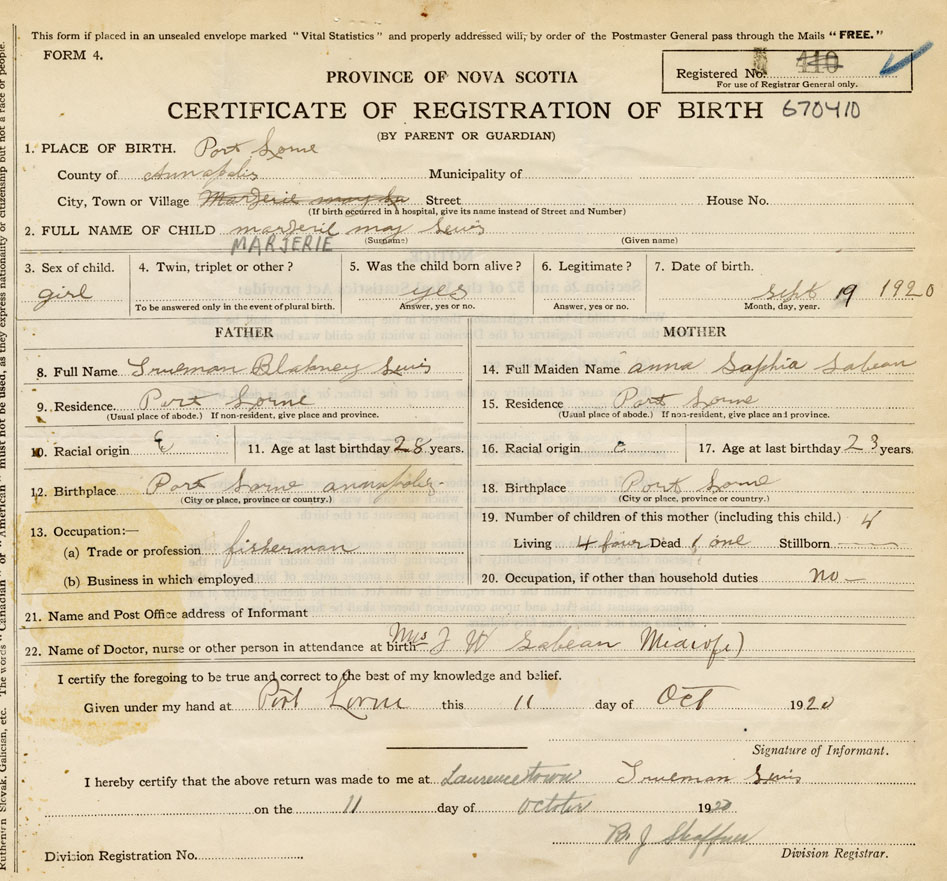 This form if placed in an unsealed envelope marked "Vital Statistics" and properly addressed will, by order of the Postmaster General pass through the Mails "FREE."
FORM 4.
Registered No. 410
For use of Registrar General only.
PROVINCE OF NOVA SCOTIA
CERTIFICATE OF REGISTRATION OF BIRTH 670410
(BY PARENT OR GUARDIAN)
1. PLACE OF BIRTH. Port Lorne
County of Annapolis Municipality of
City, Town or Village Marjerie may Street House No.
(If birth occurred in a hospital, give its name instead of Street and Number)
2. FULL NAME OF CHILD marjerie may Lewis
MARJERIE (Surname) (Given name)
3. Sex of child. 4. Twin, triplet or other? 5. Was the child born alive? 6. Legitimate? 7. Date of birth.
girl yes Sept 19 1920
To be answered only in the event of plural birth. Answer, yes or no. Answer, yes or no. Month, day, year.
FATHER MOTHER
8. Full Name Trueman Blakney Lewis 14. Full Maiden Name anna Saphia Sabean
9. Residence. Port Lorne 15. Residence Port Lorne
(Usual place of abode.) If non-resident, give place and province. (Usual place of abode.) If non-resident, give place and province.
10. Racial origin E 11. Age at last birthday 28 years. 16. Racial origin e 17. Age at last birthday 23 years.
12. Birthplace Port Lorne annapolis 18. Birthplace Port Lorne
(City or place, province or country.) (City or place, province or country.)
13. Occupation:— 19. Number of children of this mother (including this child.) 4
(a) Trade or profession fisherman Living 4 four Dead 1 one Stillborn
(b) Business in which employed 20. Occupation, if other than household duties no
21. Name and Post Office address of Informant
22. Name of Doctor, nurse or other person in attendance at birth Mrs J W Sabean Midwife)
I certify the foregoing to be true and correct to the best of my knowledge and belief.
Given under my hand at Port Lorne this 11 day of Oct 1920
Signature of Informant.
I hereby certify that the above return was made to me at Laurencetown Trueman Lewis
on the 11 day of October 1920
J Shaffner
Division Registration No. Division Registrar.
Ruthenian, Slovak, Galician, etc. The words "Canadian" or "American" must not be used, as they express nationality or citizenship but not a race or people.